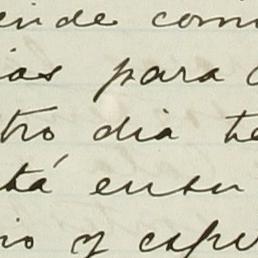 ende com
ias para
tro dia te
tá ensu
io y espe